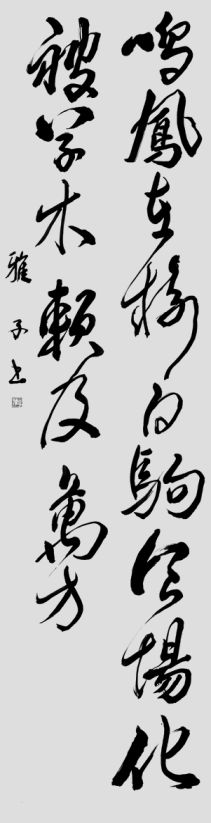 鳴鳳在樹白駒食場化
被草木賴及萬方
雅子书